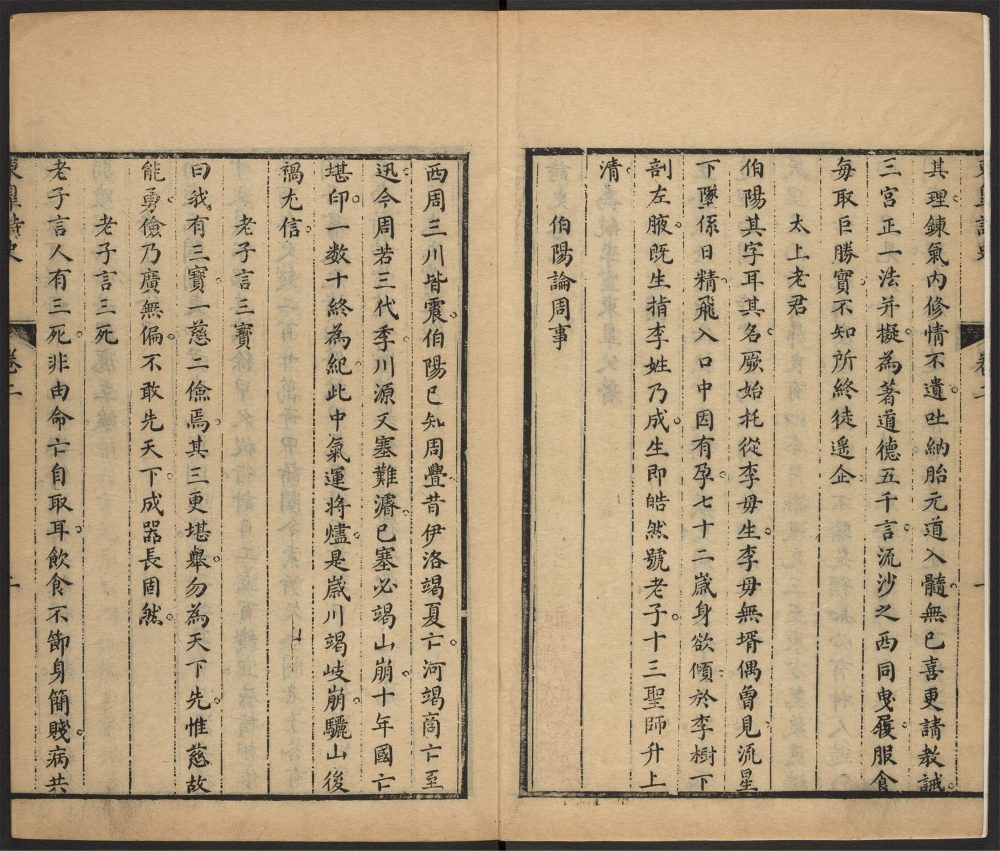 其理鍊氣内修情不遺吐納胎元道入髓無已喜更請教誡
三宮正一法并擬為著道德五千言流沙之西同曳履服食
每取巨勝實不知所終徒遥企
太上老君
伯陽其字耳其名厥始托從李母生李母無壻偶曾見流星
下墜係日精飛入口中因有孕七十二歲身欲傾於李樹下
剖左腋既生指李姓乃成生即皓然號老子十三聖師升上
清
伯陽論周事
西周三川皆震伯陽已知周疊昔伊洛竭夏亡河竭商亡至
迅今周若三代季川源又塞難濬已塞必竭山崩十年國亡
堪印一數十終為紀此中氣運將燼是歲川竭岐崩驪山後
禍尤信
老子言三寶
曰我有三寶一慈二儉焉其三更堪舉勿為天下先惟慈故
能勇儉乃廣無偏不敢先天下成器長固然
老子言三死
老子言人有三死非由命亡自取耳飲食不節身簡賤病共
卷二
二